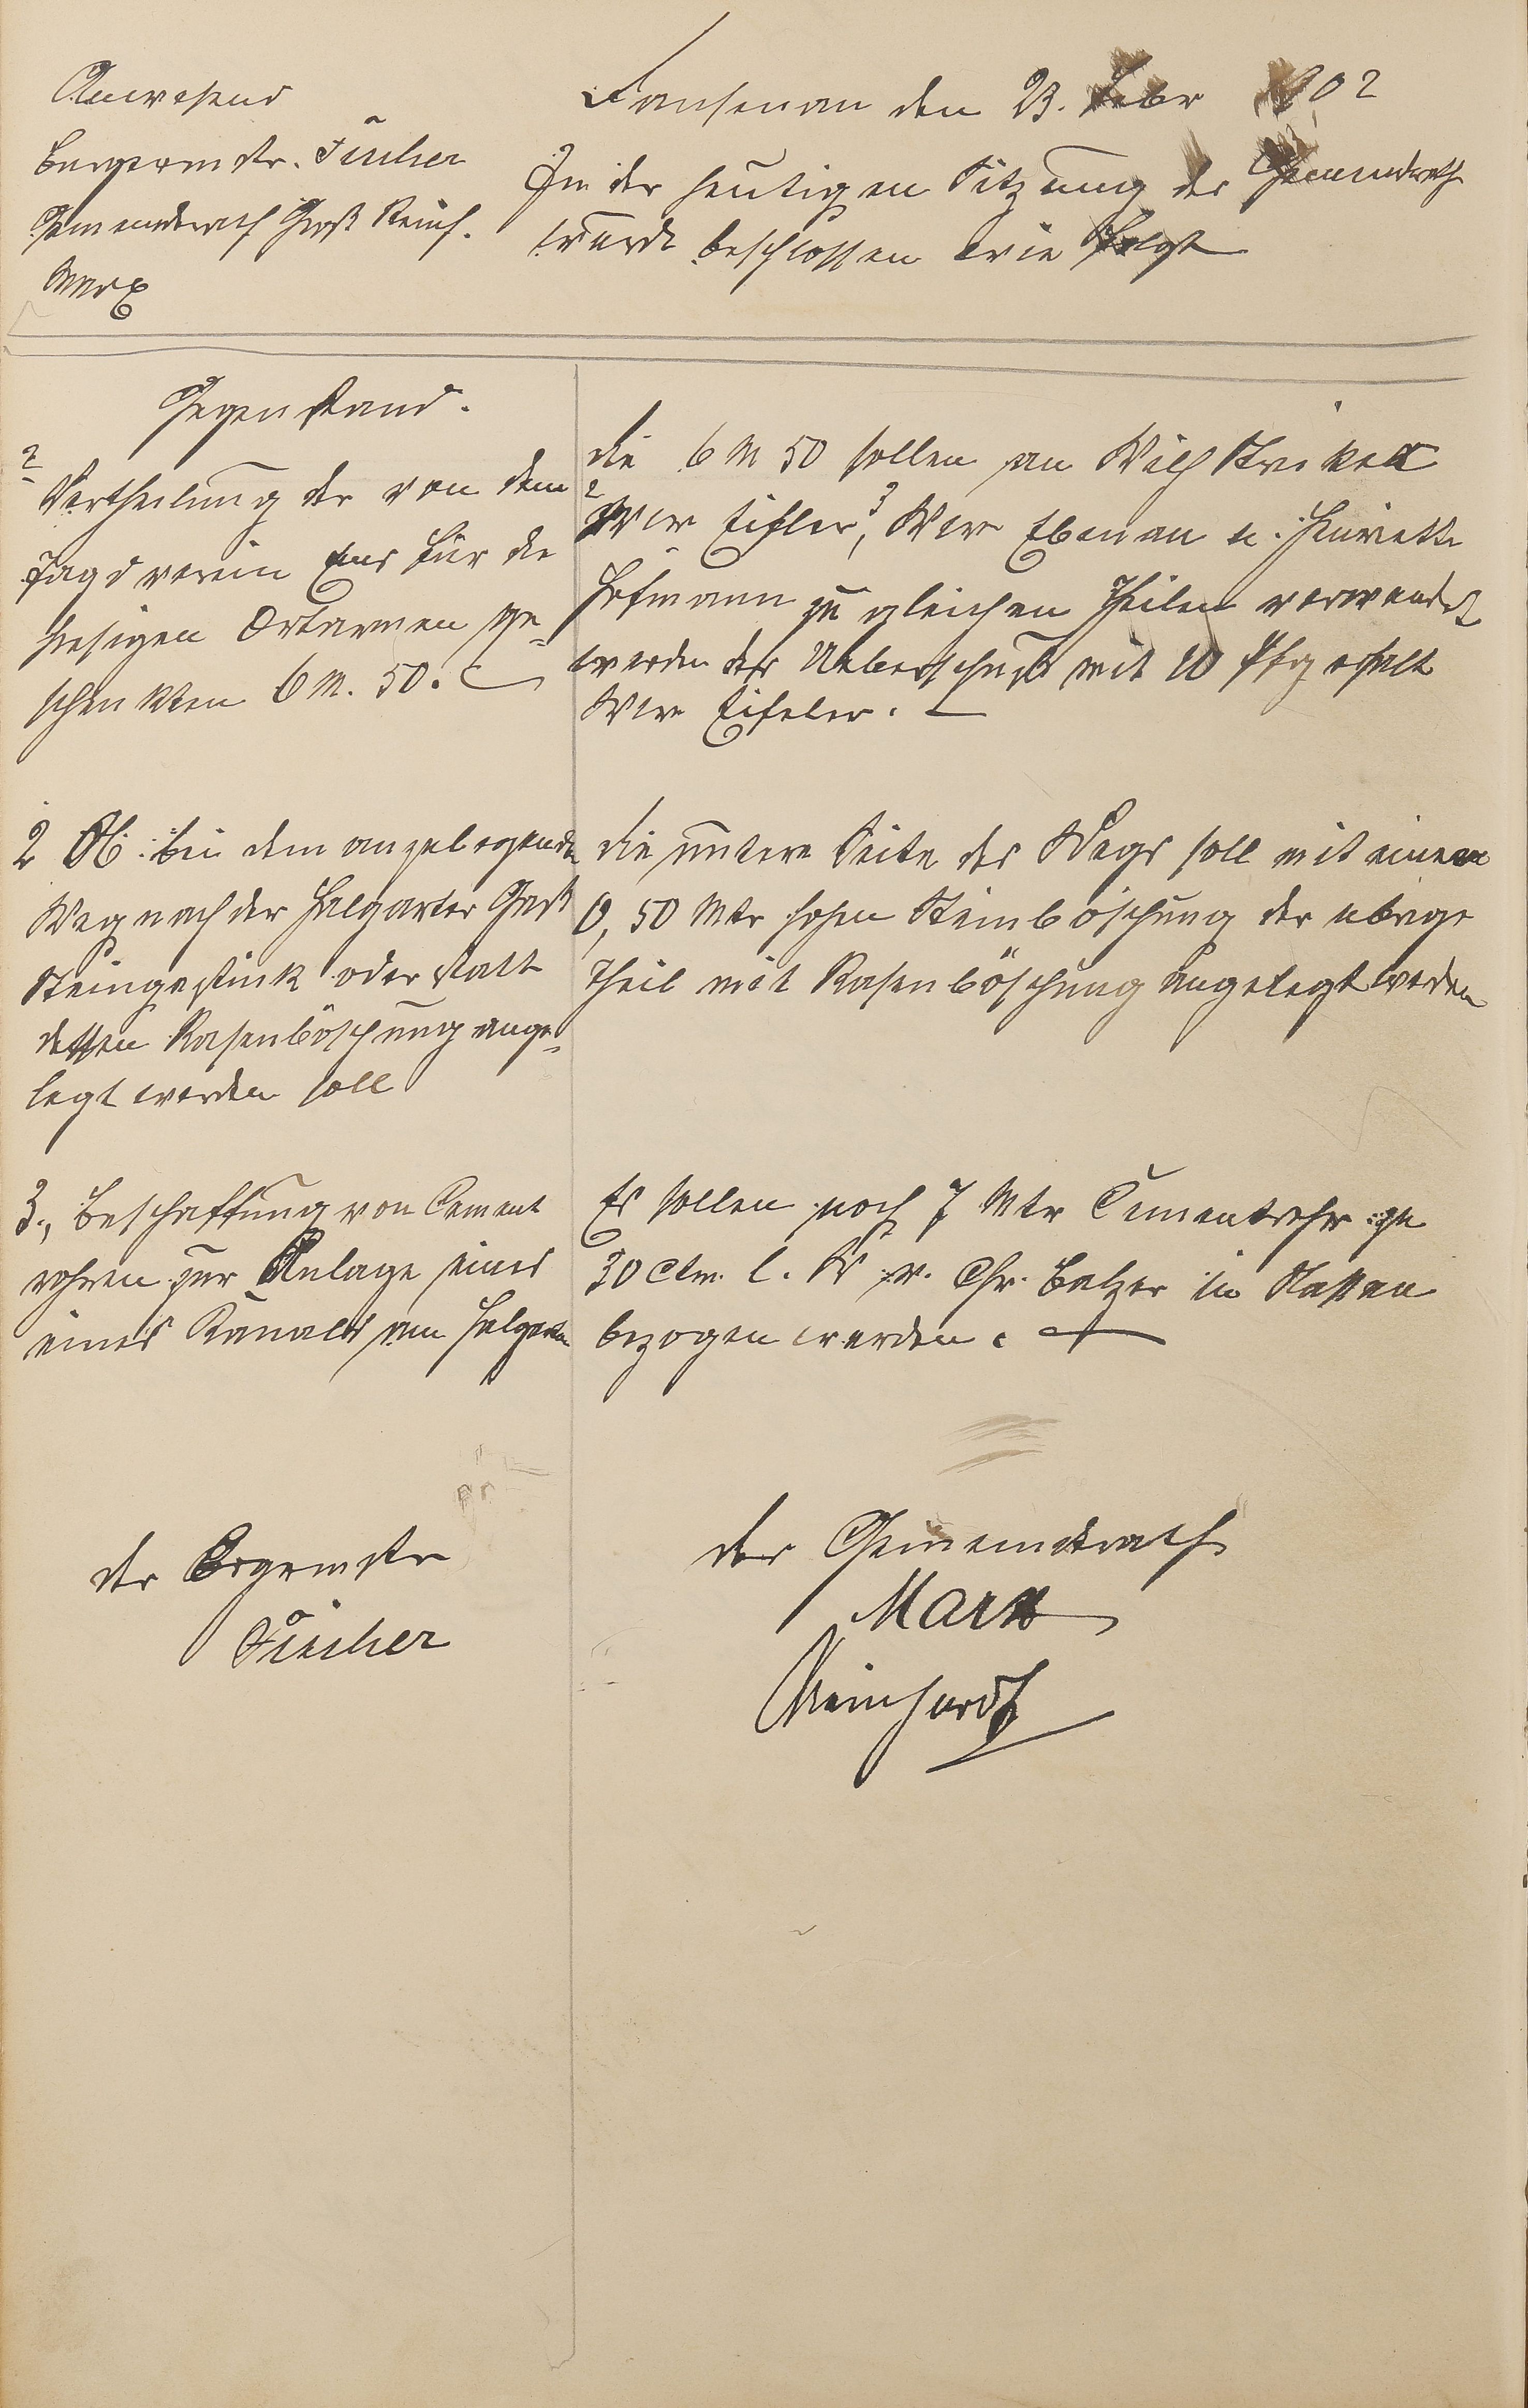 Anwesend
Bürgermstr. Fischer
Gemeinderath Groß Reinh.
Marx
Dausenau den 23. Febr 1902
In der heutigen Sitzung des Gemeindrath
wurde beschlossen wie Folgt
Gegenstand.
Vertheilung der von dem
Jagdverein Ems für die
hiesigen Ortarmen ge-
schenkten 6 M. 50.
die 6 M 50 sollen an Wilh
Wwe Eisler, Wwe Ebenau u. Henriette
Hofmann zu gleichen Theilen verwendet
werden der Ueberschuß mit 10 Pfg erhelt
Wwe Eiseler.
2 Ob bei dem
Weg nach der Halgarter
Steingestück oder statt
dessen Rasenböschung ange-
legt werden soll
die untere Seite des Wegs soll mit einer
0,50 Mtr hohen Steinböschung der ubrige
Theil mit Rasenböschung angelegt werden
3., Beschaffung von Cement
rohren zur Anlage eines
eines Kanals am
Es sollen noch 7 Mtr Cementrohr zu
30 Ctm. l. W v. Chr. Balzer in Nassau
bezogen werden.
der Brgrmstr
Fischer
der Gemeindrath
Marx
Reinhardt